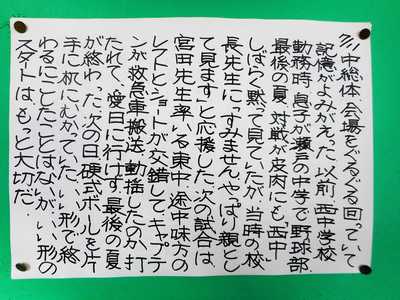 7/1中総体会場をぐるぐる回っていて
記憶がよみがえった。以前西中学校
勤務時、息子が瀬戸の中学で野球部
最後の夏、対戦が皮肉にも西中
しばらく黙って見ていたが、当時の校
長先生に「すみませんやっぱり親とし
て見ます」と応援した。次の試合は
宮田先生率いる東中、途中味方の
レフトとショートが交錯してキャプテ
ンが救急車搬送、動揺したのか打
たれて、愛日に行けず。最後の夏
が終わった。次の日硬式ボールを片
手に机にむかっていた。いい形で終
わるにこしたことはないが、いい形の
スタートはもっと大切だ。